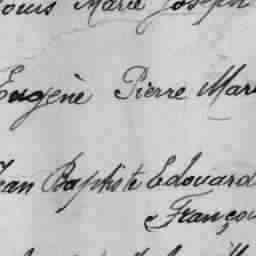 Louis Marie Joseph
Eugène Pierre Mar
Jean Baptiste Edouard
Françoi